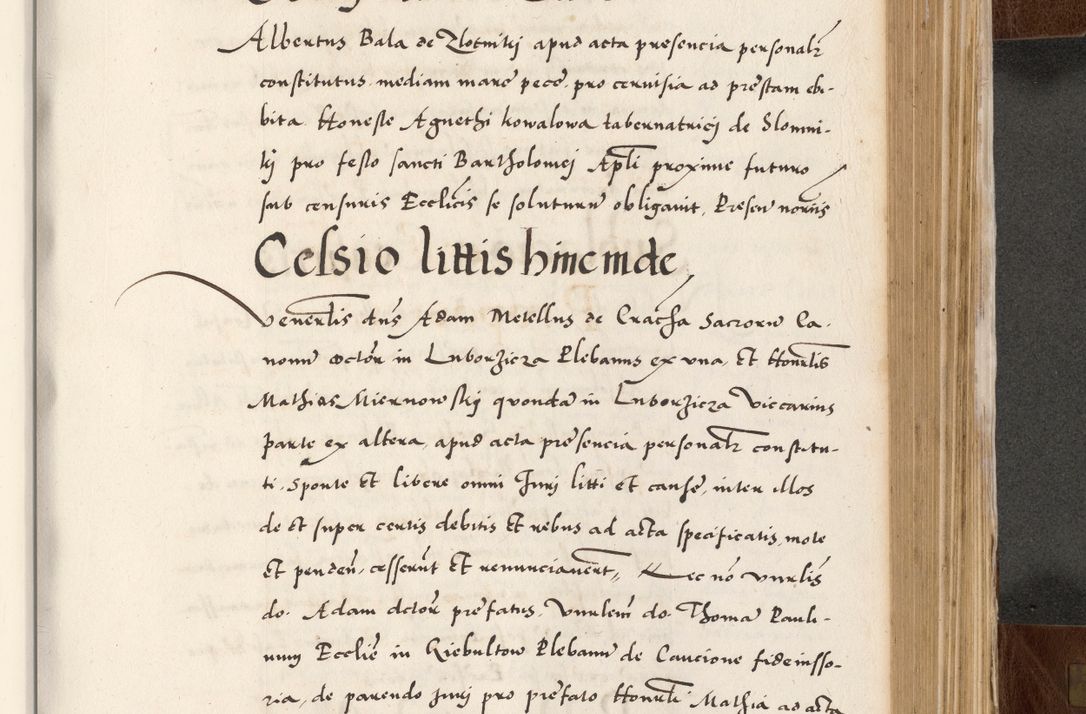 Albertus Bala de Zlotniky apud acta presencia personalr
constitutus mediam marc pece. pro cervisia ad prestam ebi-
bita. Honeste Agnethi kowalowa tabernatrici de Slomni-
kj pro festo sancti Bartholomej Apli proxime futuro
sub censuris Ecclicis se soluturum obligavit, Presen notriis
Cessio littis hinc inde
Venerlis dns Adam Metellus de Cracha Sacroru Ca-
nonu doctor in Luborzicza Plebanus ex una, Et Honrlis
Mathias Miernowskj quonda in Luborzicza Viccarius
parte ex altera, apud acta presencia personalr constitu-
ti, Sponte Et libere omni Juri litti et cause, inter illos
de et super certis debitis Et rebus ad acta specificatis, mote
Et penden, cesserunt Et renunciaverut, Nec no Vnrlis
do. Adam doctor prefatus, Vnrlem do. Thoma Pauli-
num Ecclie in Giebultow Plebanu de Caucione fideiusso-
ria, de parendo Juri pro prefato Honrli Mathia ad acta